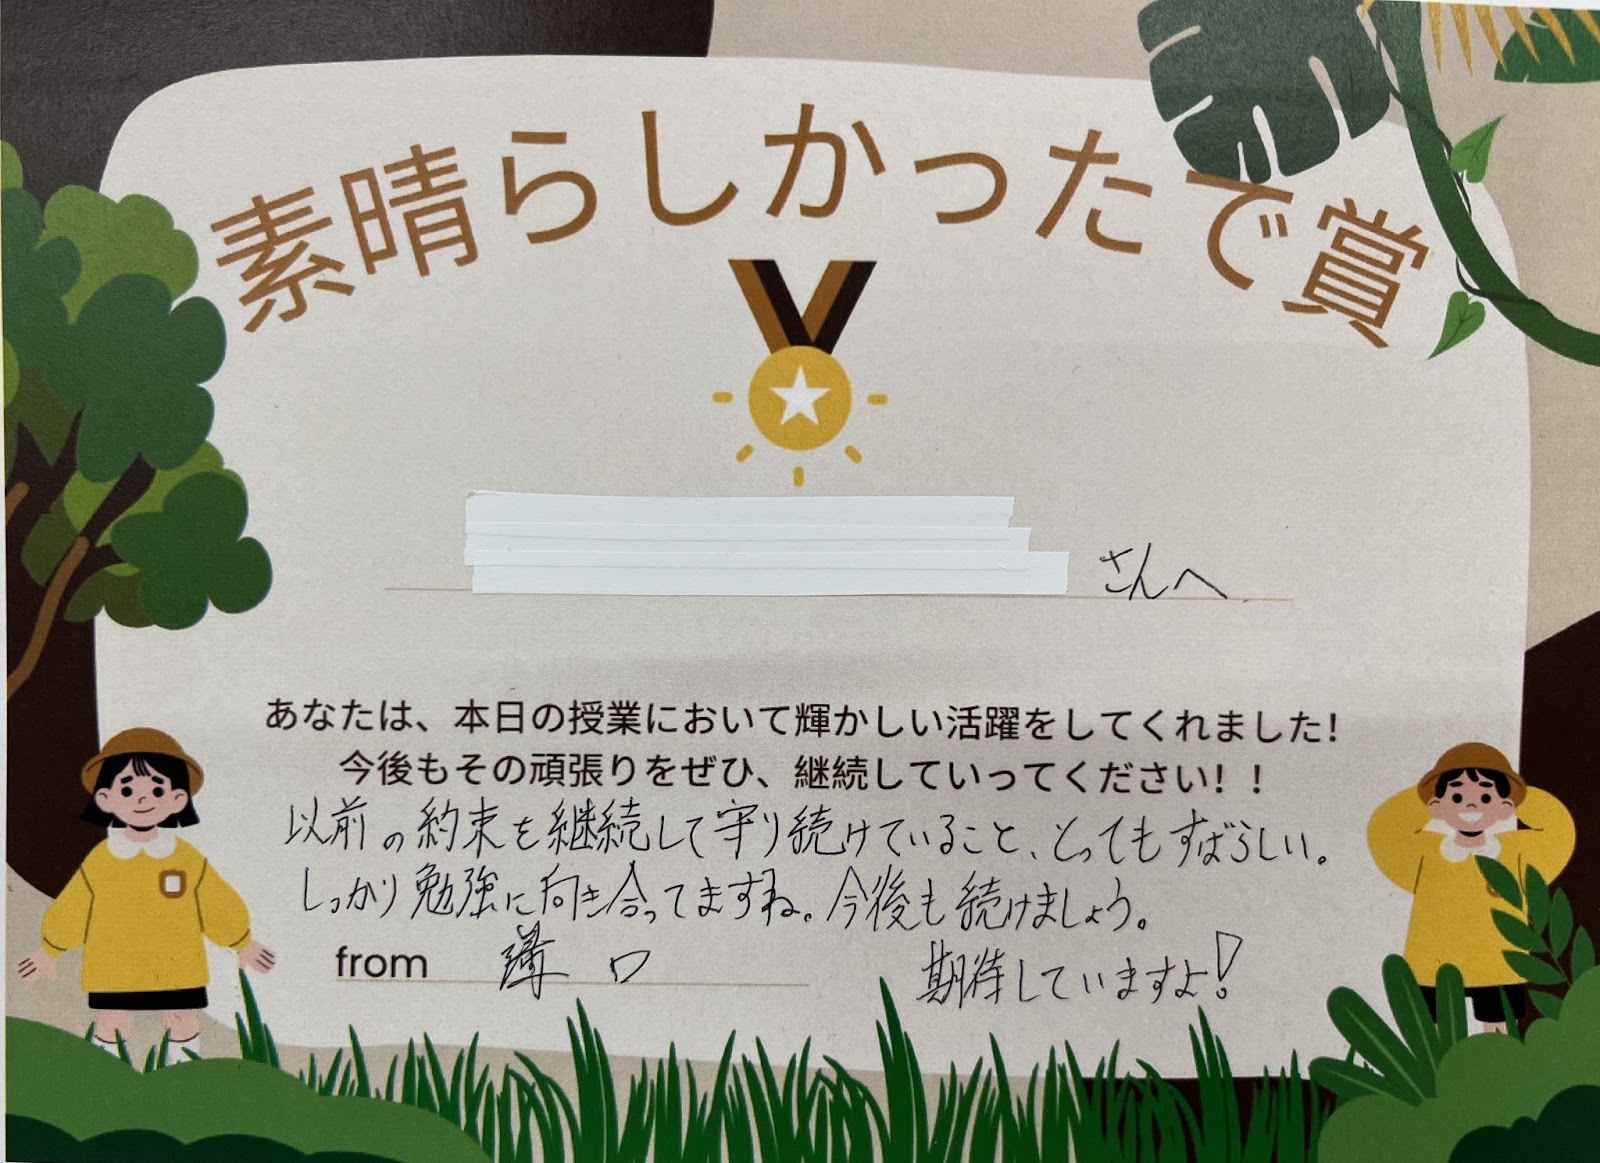 素晴らしかったで賞
さんへ
あなたは、本日の授業において輝かしい活躍をしてくれました!
今後もその頑張りをぜひ、継続していってください！！
以前の約束を継続して守り続けていること、とってもすばらしい。
しっかり勉強に向き合ってますね。今後も続けましょう。
from 口
期待していますよ!